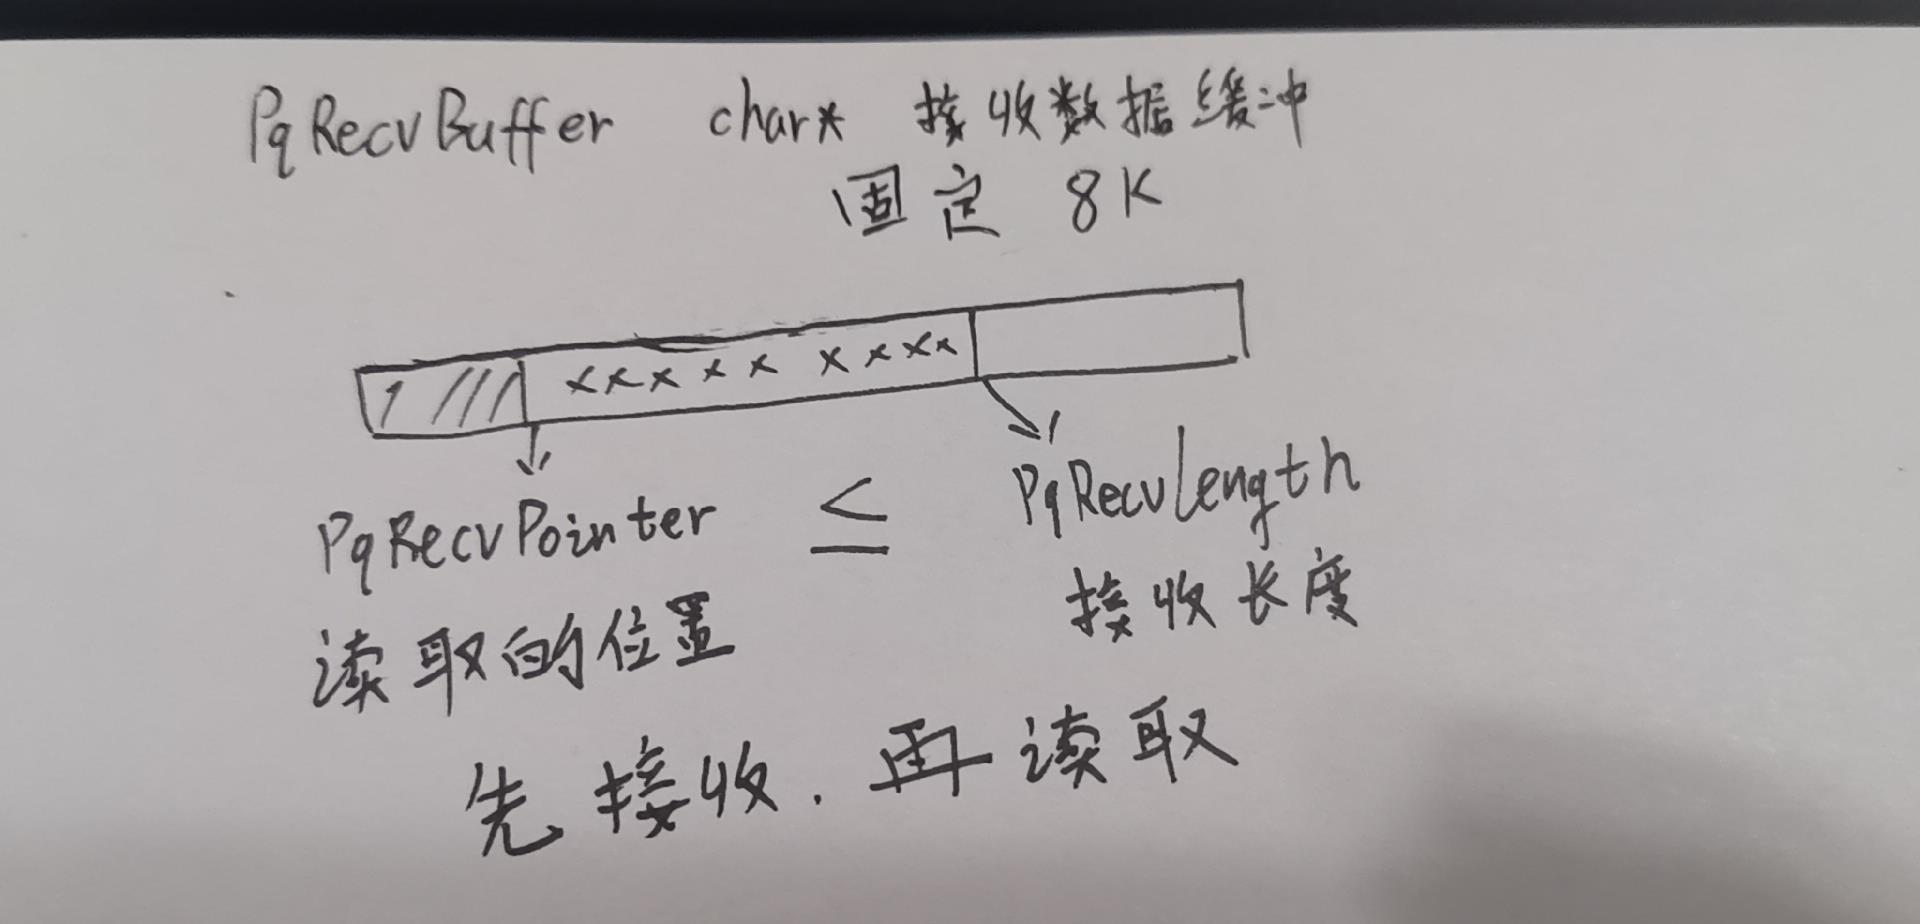 PqRecvBuffer char* 接收数据缓冲
固定 8K
PqRecvPointer ≤ PqRecvLength
读取的位置 接收长度
先接收.再读取